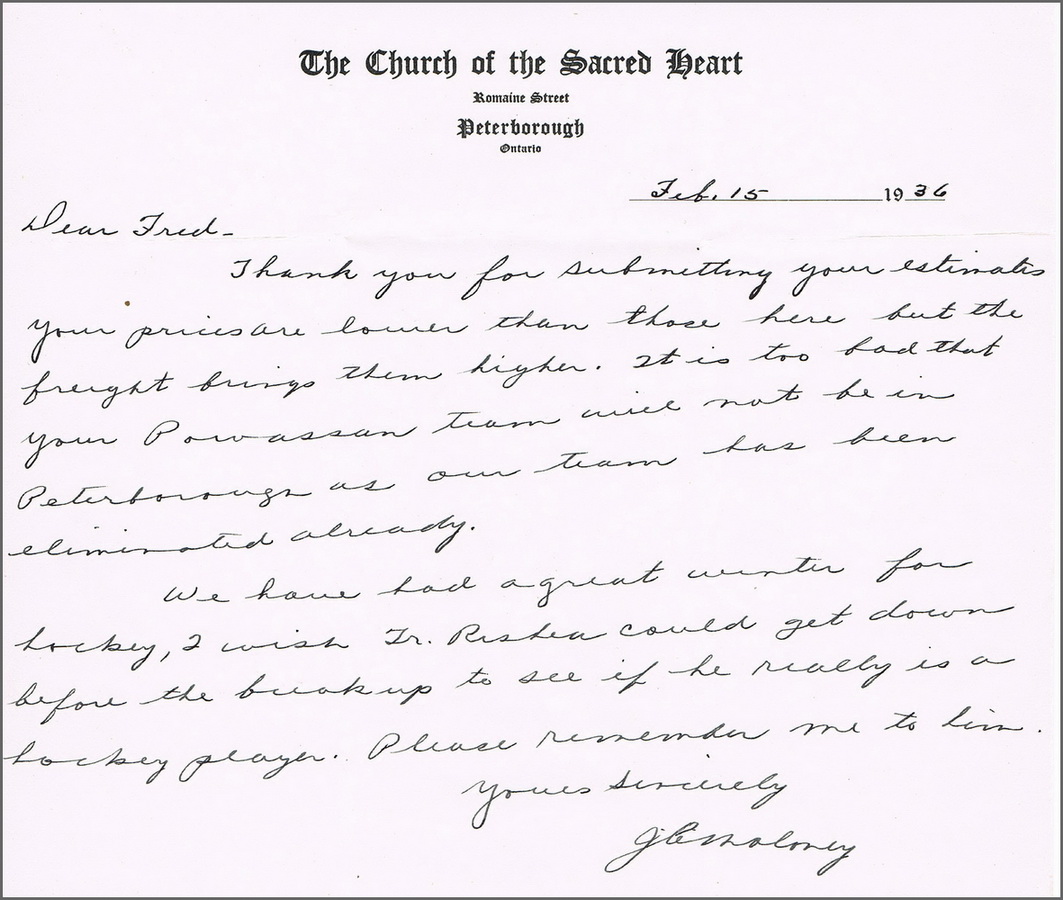 The Church of the Sacred Heart
Romaine Street
Peterborough
Ontario
Feb. 15 1936
Dear Fred-
Thank you for submitting your estimates
your prices are lower than those here but the
freight brings them higher. It is too bad that
your Powassan team will not be in
Peterborough as our team has been
eliminated already.
We have had a great winter for
hockey, I wish Fr. Rishea could get down
before the breakup to see if he really is a
hockey player. Please remember me to him.
Yours Sincerely
Maloney